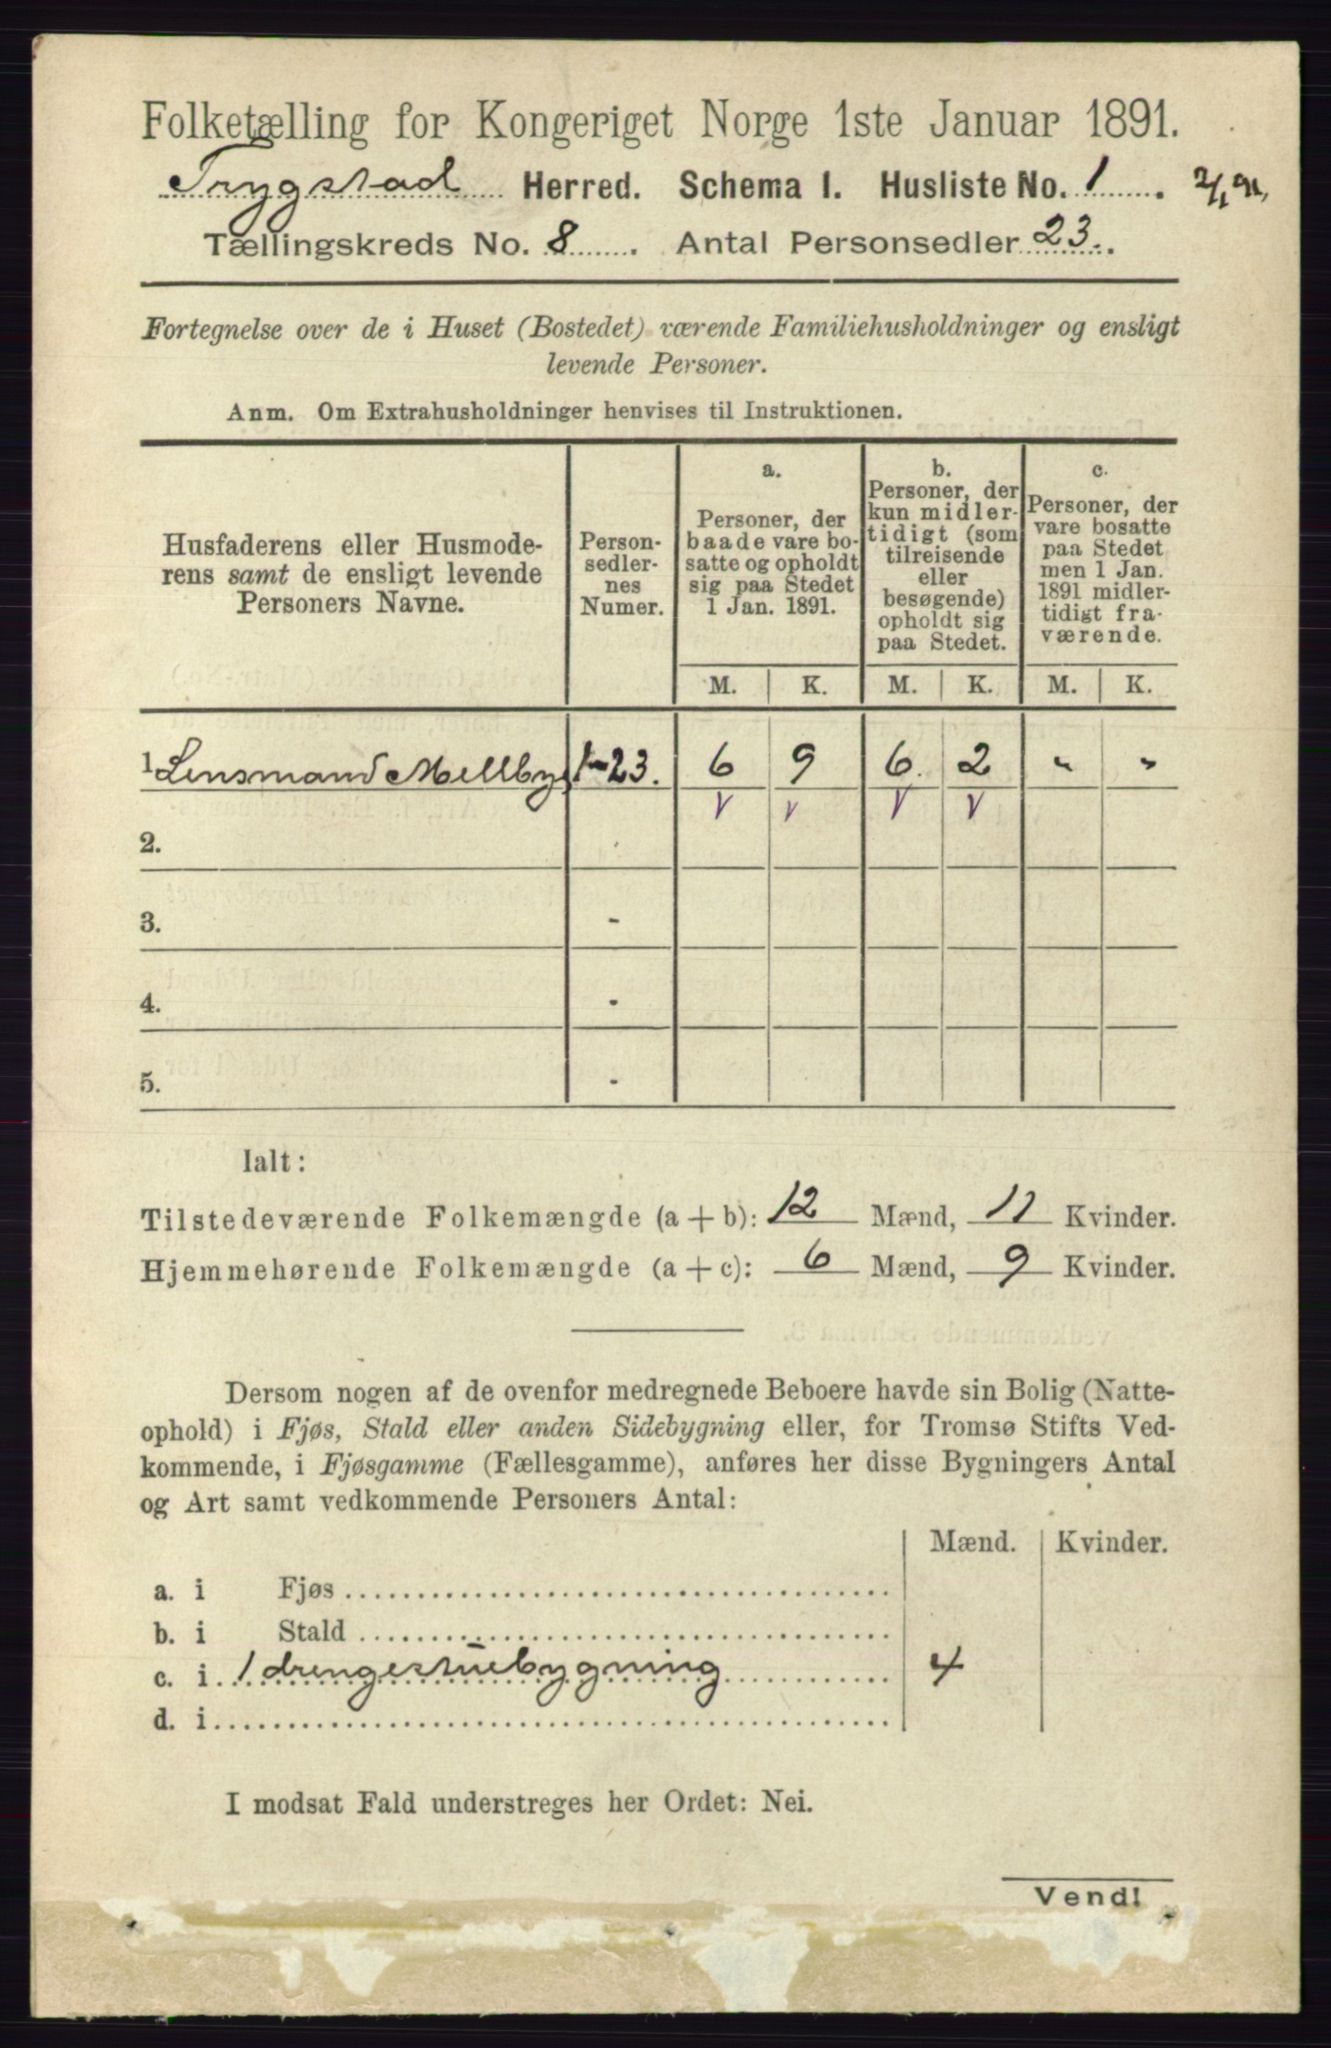 Folketælling for Kongeriget Norge 1ste Januar 1891.
Trygstad Herred. Schema I. Husliste No. 1. 2/1 91,
Tællingskreds No. 8. Antal Personsedler 23.
Fortegnelse over de i Huset (Bostedet) værende Familiehusholdninger og ensligt
levende Personer.
Anm. Om Extrahusholdninger henvises til Instruktionen.
Husfaderens eller Husmode-
rens samt de ensligt levende
Personers Navne.
Person-
sedler-
nes
Numer.
a.
Personer, der
baade vare bo-
satte og opholdt
sig paa Stedet
1 Jan. 1891.
b.
Personer, der
kun midler-
tidigt (som
tilreisende
eller
besøgende)
opholdt sig
paa Stedet.
c.
Personer, der
vare bosatte
paa Stedet
men 1 Jan.
1891 midler-
tidigt fra-
værende.
M. K. M. K. M. K.
1 Lensmand Mellbye 1-23. 6 9 6. 2 " "
V V V V
2.
3. -
4. -
5. -
Ialt:
Tilstedeværende Folkemængde (a + b): 12 Mænd, 11 Kvinder.
Hjemmehørende Folkemængde (a + c): 6 Mænd, 9 Kvinder.
Dersom nogen af de ovenfor medregnede Beboere havde sin Bolig (Natte-
ophold) i Fjøs, Stald eller anden Sidebygning eller, for Tromsø Stifts Ved-
kommende, i Fjøsgamme (Fællesgamme), anføres her disse Bygningers Antal
og Art samt vedkommende Personers Antal:
Mænd. Kvinder.
a. i Fjøs
b. i Stald
c. i 1 drengestuebygning 4
d. i
I modsat Fald understreges her Ordet: Nei.
Vend!